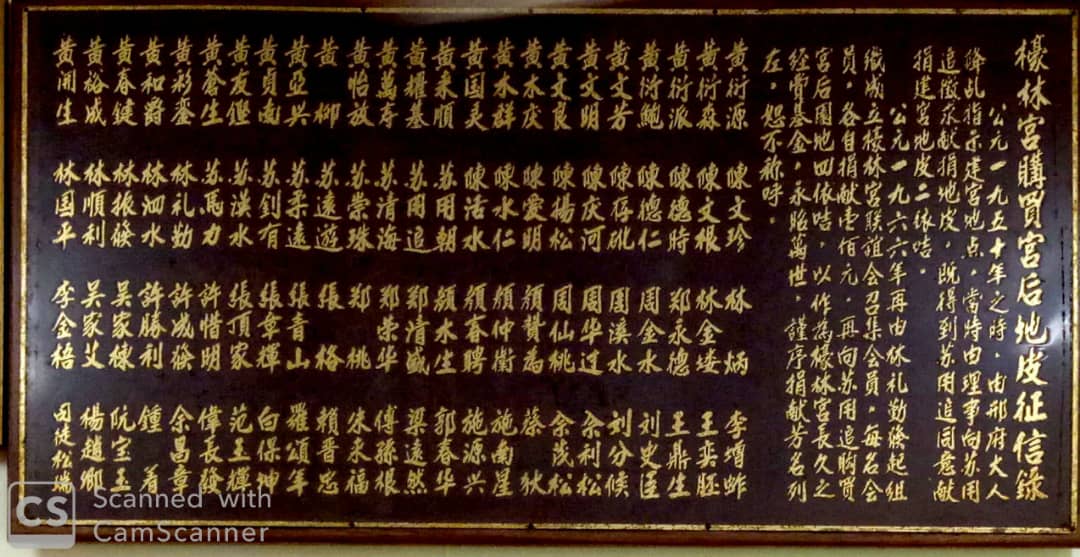 檺林宮購買宮后地皮征信錄
公元一九五十年之時，由邢府大人
降乩指示建宮地点，當時由理事向苏用
追徵求献捐地皮，既得到苏用追同意献
捐建宮地皮二依咭。
公元一九六六年再由林礼勤發起組
織成立檺林宮联誼会召集会員，每名会
員，各自捐献壹佰元，再向苏用追购買
宮后園地四依咭，以作為檺林宮長久之
経常基金，永貽萬世，謹序捐献芳名列
左，恕不称呼。
黄衍源 陳文珍 林炳 李増蚱
黄衍森 陳文根 林金堎 王奕胚
黄衍派 陳德時 郑永德 王鼎生
黄衍鮑 陳德仁 周金水 刘史臣
黄文芳 陳存砒 周溪水 刘分候
黄文明 陳庆河 周华过 佘利松
黄文良 陳揚松 周仙桃 佘茂松
黄木庆 陳愛明 顏贊為 蔡狄
黄木群 陳水仁 顏仲衡 施南星
黄国灵 陳活水 顏春聘 施源兴
黄来順 苏用朝 顏水生 郭春华
黄櫃基 苏用追 郑清盛 梁遠然
黄萬存 苏清海 郑荣华 傅孫根
黄怡放 苏崇珠 郑桃 朱来福
黄柳 苏遠遊 張格 賴晋忠
黄亞兴 苏柔遠 張青山 羅頌年
黄貞南 苏钊有 張章輝 白保神
黄友鏗 苏漢水 張頂家 范王輝
黄蒼生 苏馬力 許惜明 偉長發
黄彩銮 林礼勤 許成發 佘昌章
黄和爵 林泗水 許勝利 鍾着
黄春键 林振發 吴家棣 阮宝玉
黄裕成 林順利 吴家艾 楊趙卿
黄開生 林国平 李金梧 司徒松瑞
CS Scanned with
CamScanner